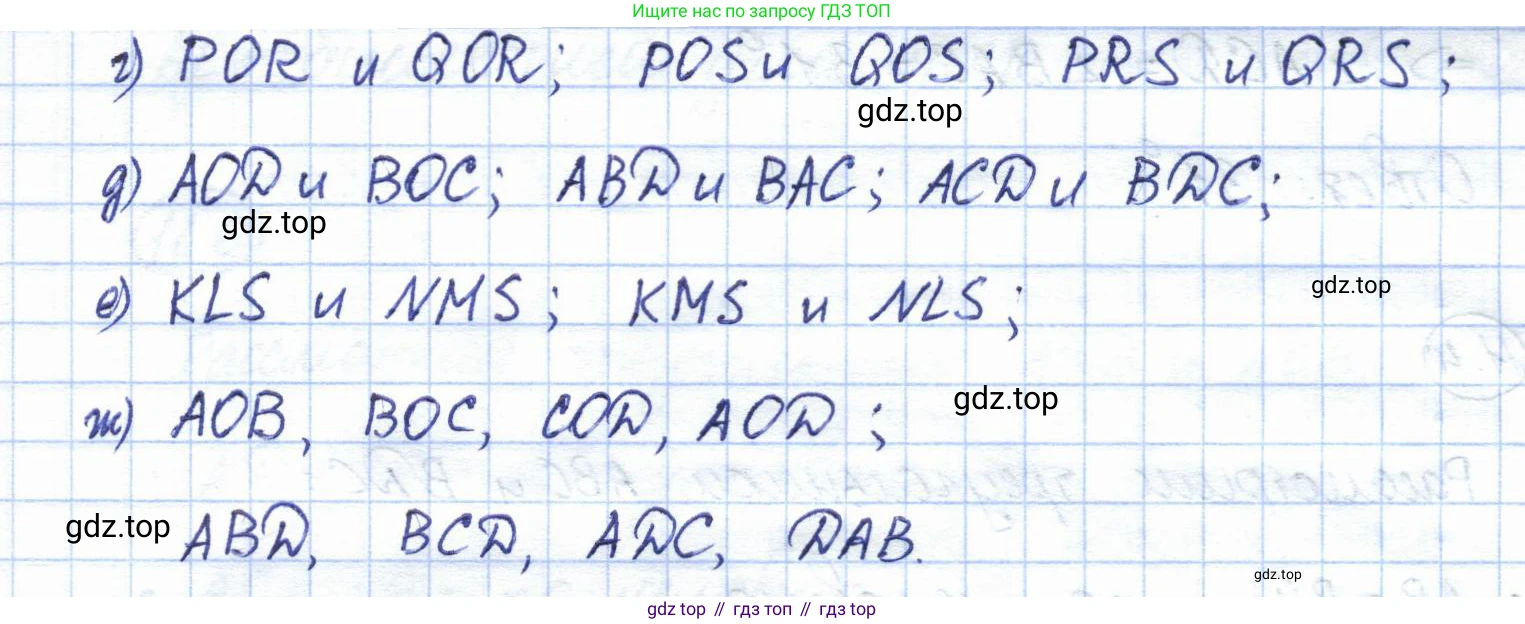 Ищите нас по запросу ГДЗ ТОП
г) POR и QOR; POS и QOS; PRS и QRS;
gdz.top
д) AOD и BOC; ABD и BAC; ACD и BDC;
gdz.top
е) KLS и NMS; KMS и NLS;
gdz.top
ж) AOB, BOC, COD, AOD;
gdz.top
ABD, BCD, ADC, DAB.
gdz.top
gdz.top
gdz top // гдз топ // гдз top